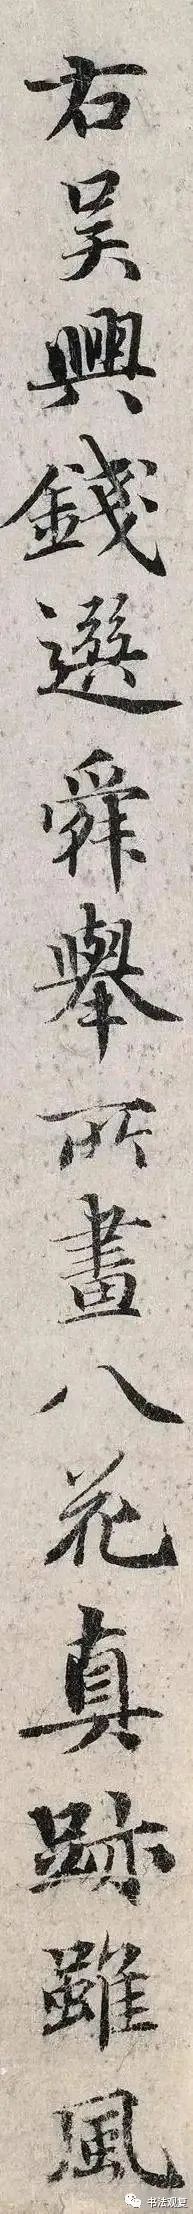 右吴興錢選舜舉所畫八花真跡雖風
书法观复